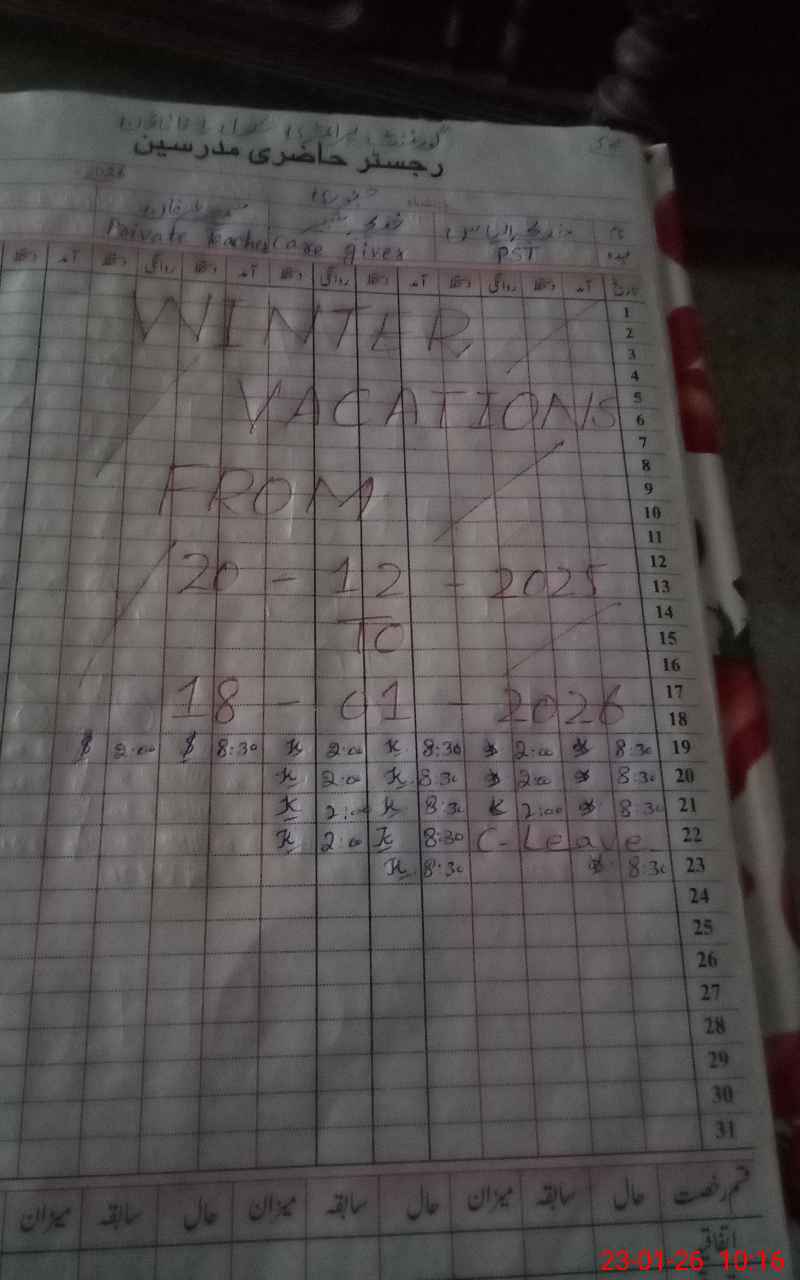 گورنمنٹ پرائمری سکول
رجسٹر حاضری مدرسین
2026
جنوری
نام
Private Teacher Care giver PST عہدہ
تاریخ آمد دستخط روانگی دستخط آمد دستخط روانگی دستخط آمد دستخط روانگی دستخط آمد دستخط
1
WINTER 2
3
4
5
VACATIONS 6
7
8
FROM 9
10
11
12
20 - 12 - 2025 13
14
TO 15
16
17
18 - 01 - 2026 18
2:00 8:30 K 2:00 K 8:30 2:00 8:30 19
K 2:00 K 8:30 2:00 8:30 20
K 2:00 K 8:30 2:00 8:30 21
K 2:00 K 8:30 C-Leave 22
K 8:30 8:30 23
24
25
26
27
28
29
30
31
قسم رخصت حال سابقہ میزان حال سابقہ میزان حال سابقہ میزان
اتفاقیہ
23-01-26 10:16